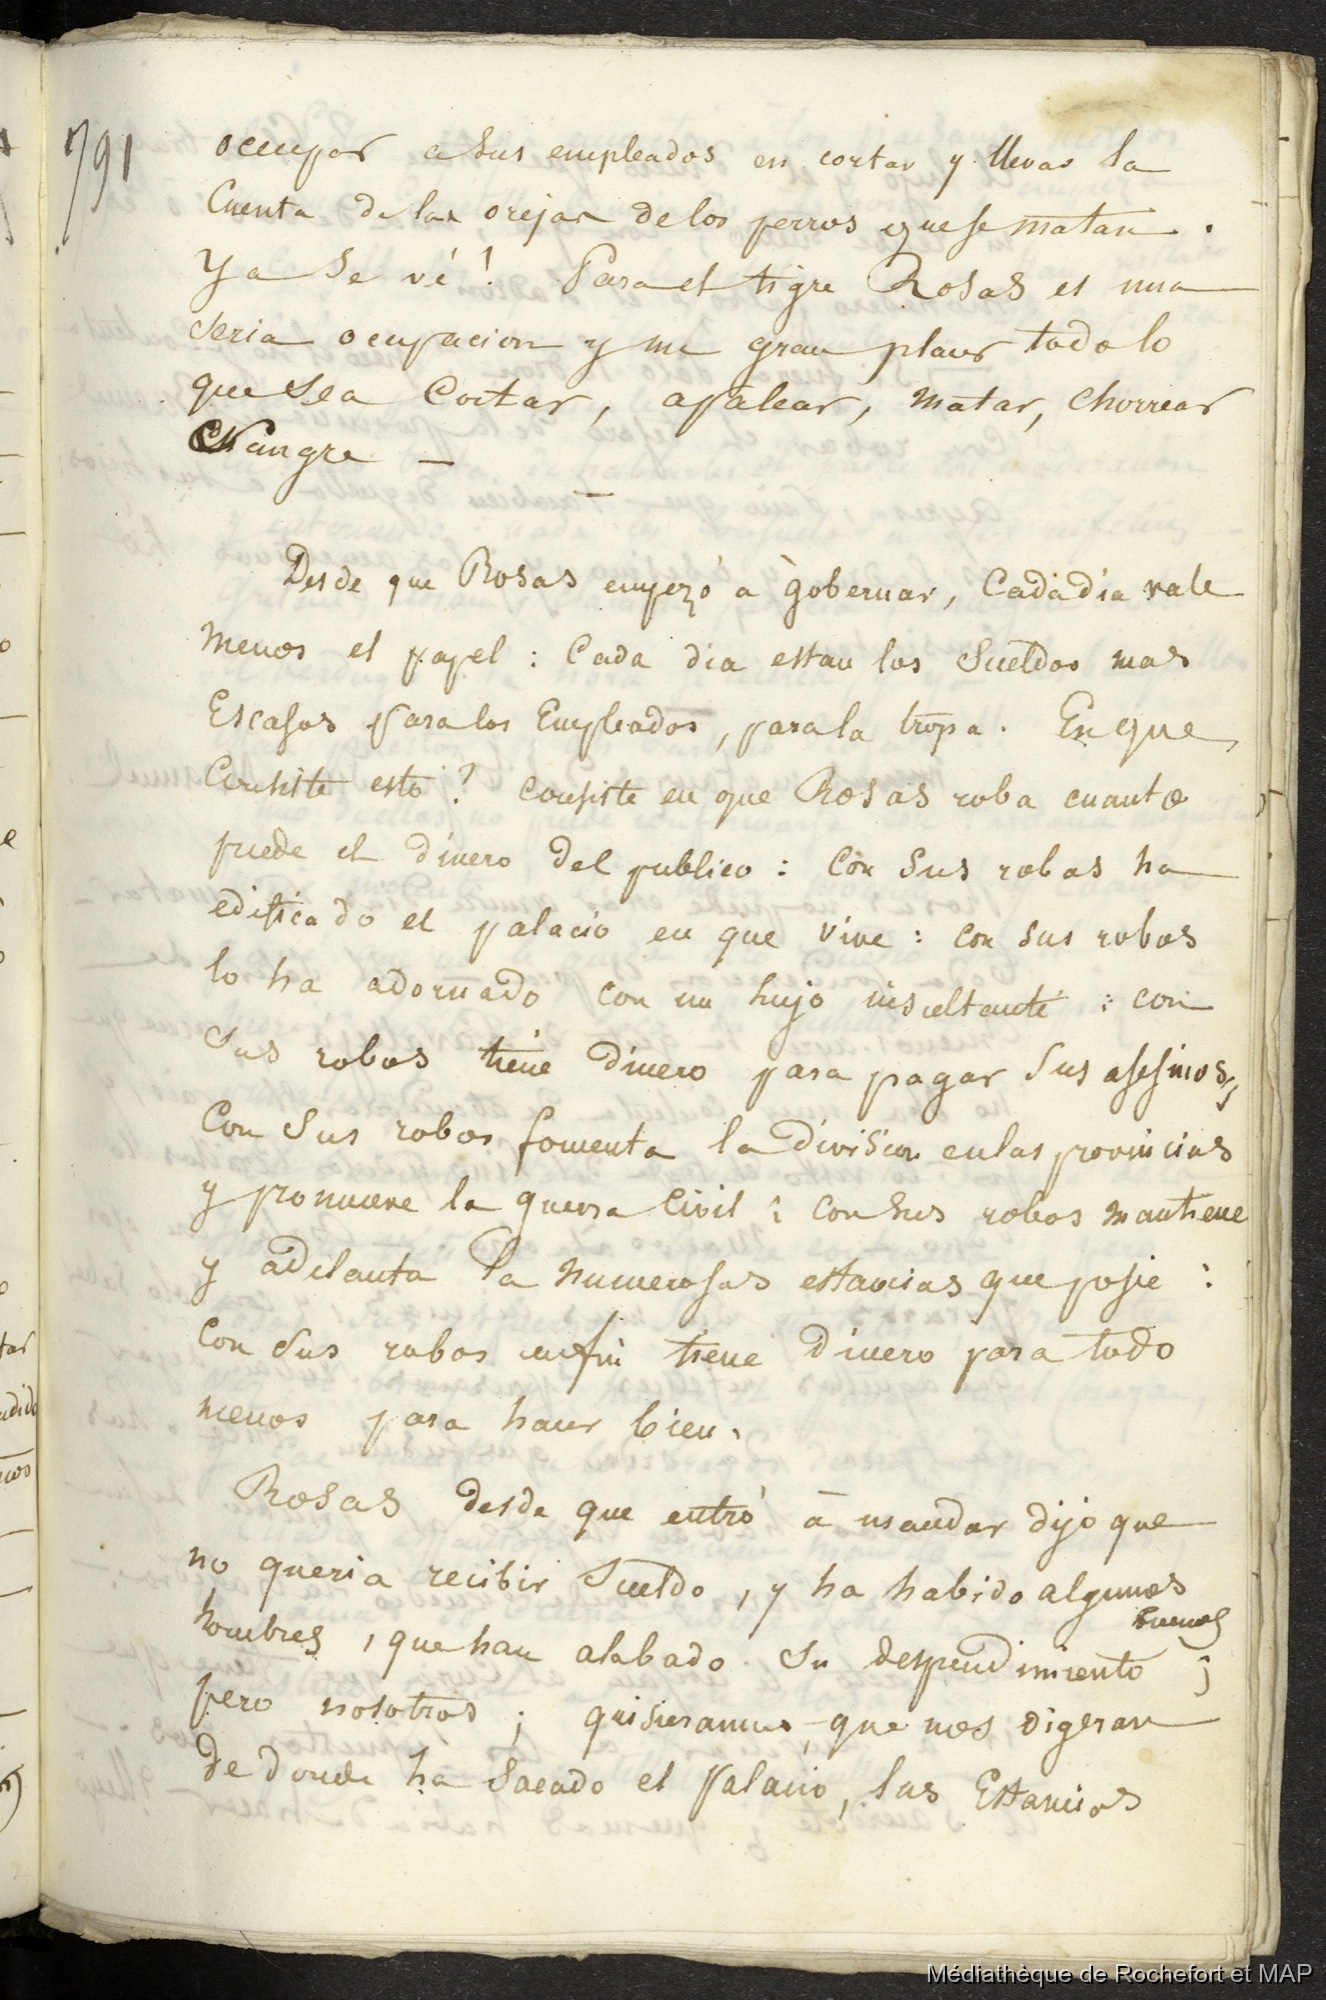 791
occupar a sus empleados en cortar y llevar la
Cuenta de las orejas de los perros que se matan.
Ya se vé! Para el tigre Rosas es una
seria ocupacion y un gran placer todo lo
que sea Cortar, apalear, matar, chorrear
Sangre —
Desde que Rosas empezó a gobernar, Cada dia vale
menos el papel: Cada dia estan los Sueldos mas
Escasos para los Empleados, para la tropa. En que
Consiste esto? consiste en que Rosas roba cuanto
puede el dinero del publico: Con sus robos ha
edificado el palacio en que vive: con sus robos
lo ha adornado con un lujo insultante: con
Sus robos tiene dinero para pagar sus asesinos;
Con sus robos fomenta la division en las provincias
y promueve la guerra Civil: con sus robos mantiene
y adelanta la numerosas estancias que posie:
Con sus robos en fin tiene dinero para todo
menos para hacer bien.
Rosas desde que entró à mandar dijo que
no queria recibir Sueldo, y ha habido algunos
buenos
hombres, que han alabado su desprendimiento;
pero nosotros; quisieramos que nos digeran
de donde ha sacado el palacio, las Estancias
Médiathèque de Rochefort et MAP